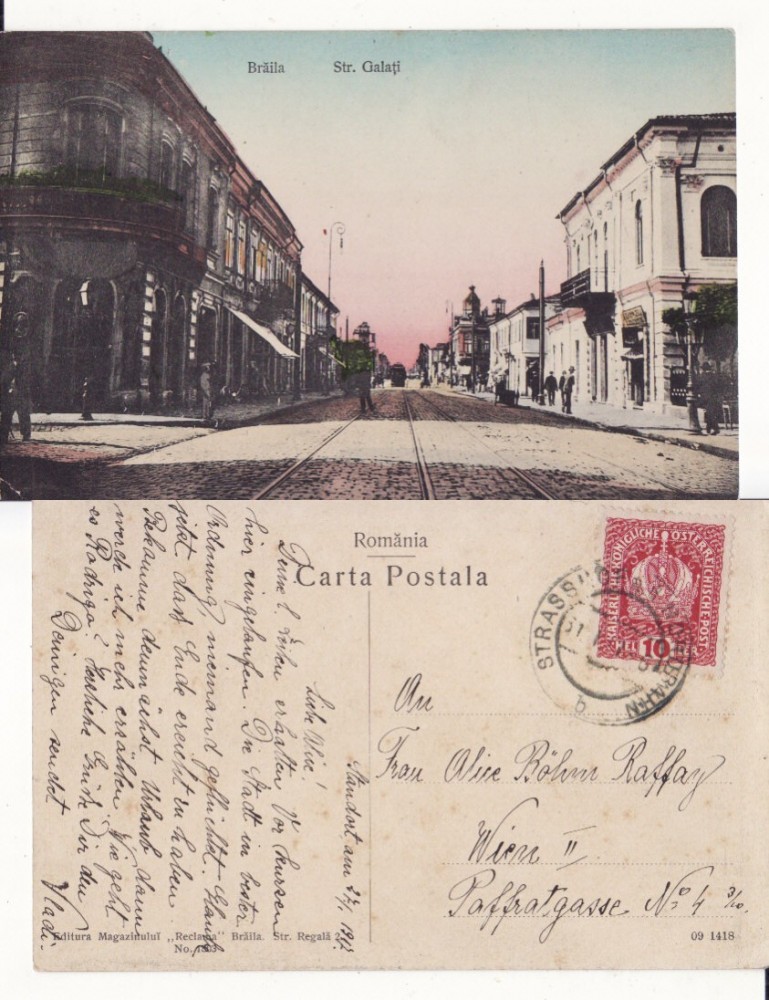 Brăila Str. Galați
România
Carta Postala
KAISERLICHE KÖNIGLICHE ÖSTERREICHISCHE POST
HELLER
10
STRASS
b
An
Frau Alice Böhm Raffay
Wien II
Paffratgasse No 4 3/10.
Standort am 27/ 191
Liebe Alice!
Deine l. Zeilen erhalten. Vor kurzem
hier eingelaufen. Die Stadt in bester
Ordnung, niemand geflüchtet. Glaube
jetzt das Ende erreicht zu haben.
Bekomme demnächst Urlaub dann
werde ich mehr erzählen. Wie geht
es Rodriga? Herzliche Grüße Dir den
Deinigen sendet
Vladi.
Editura Magazinului „Reclama" Brăila. Str. Regală 2
No.
09 1418